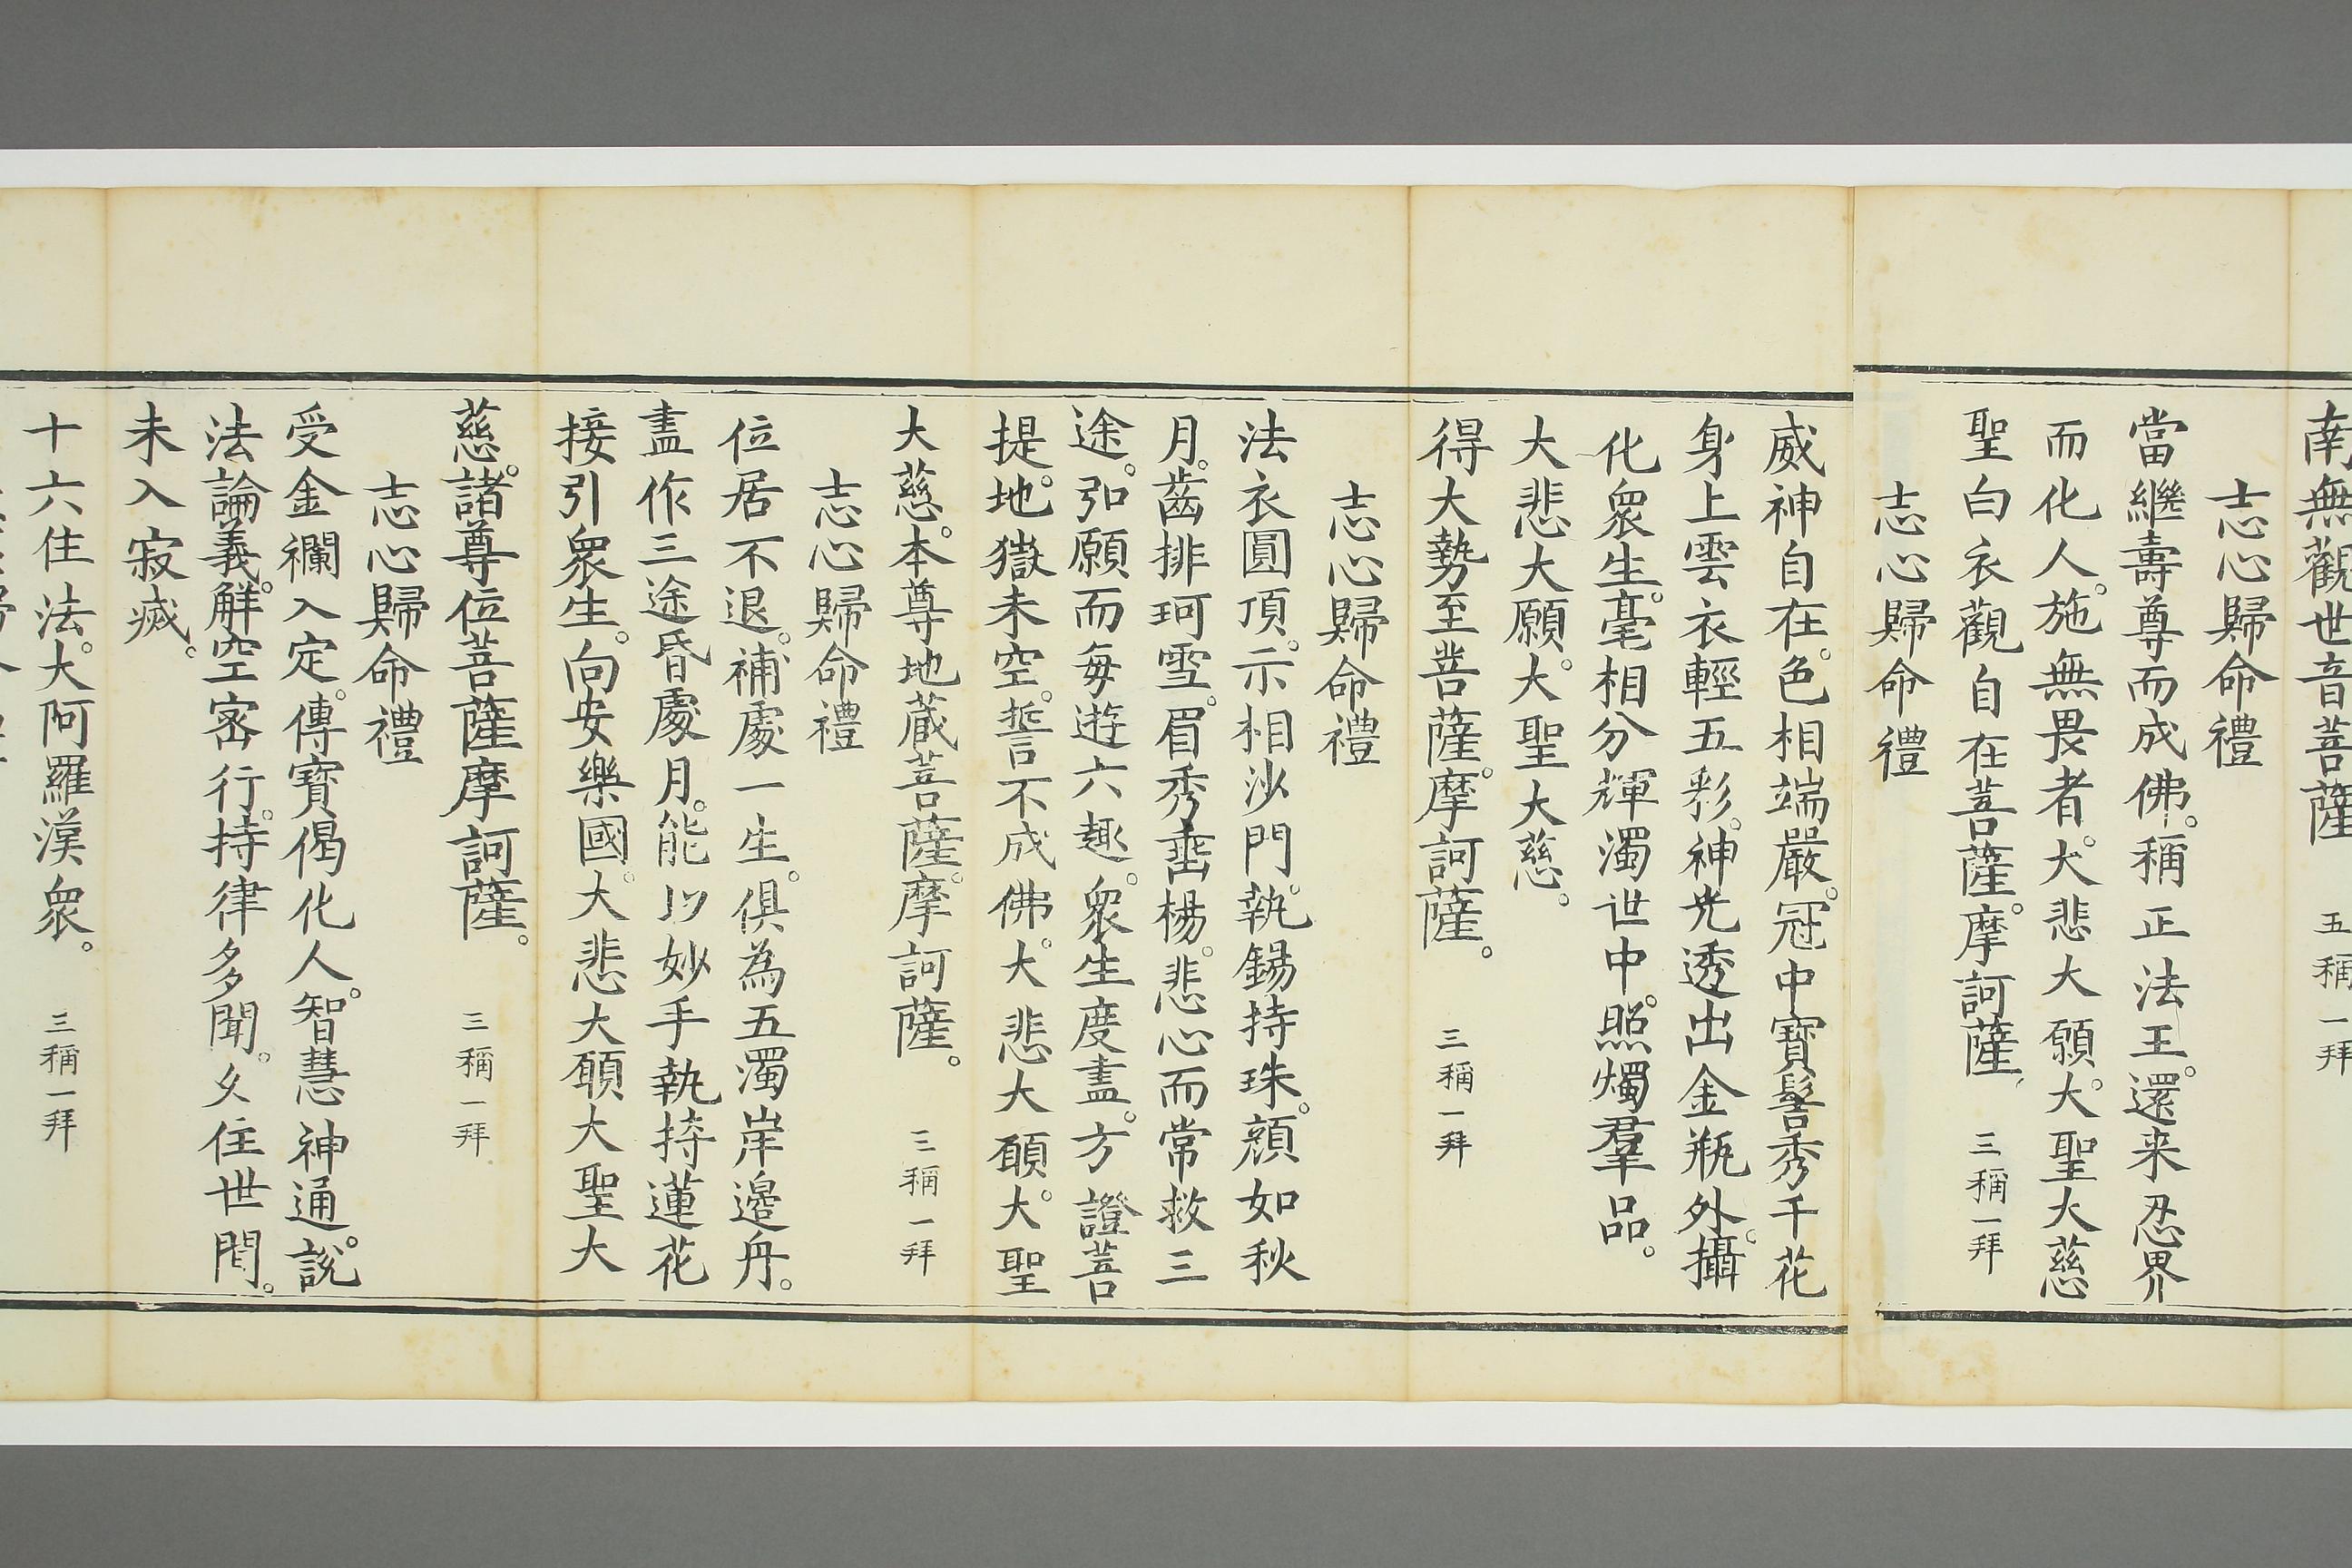 南無觀世音菩薩 五稱一拜
志心歸命禮
當繼壽尊而成佛。稱正法王。還来忍界
而化人。施無畏者。大悲大願。大聖大慈
聖白衣觀自在菩薩。摩訶薩。 三稱一拜
志心歸命禮
威神自在。色相端嚴。冠中寶髻秀千花
身上雲衣輕五彩。神光透出金瓶外。攝
化衆生。毫相分輝濁世中。照燭羣品。
大悲大願。大聖大慈。
得大勢至菩薩。摩訶薩。 三稱一拜
志心歸命禮
法衣圓頂。示相沙門。執錫持珠。顔如秋
月。齒排珂雪。眉秀垂楊。悲心而常救三
途。弘願而每遊六趣。衆生度盡。方證菩
提。地獄未空。誓不成佛。大悲大願。大聖
大慈。本尊地蔵菩薩。摩訶薩。 三稱一拜
志心歸命禮
位居不退。補處一生。俱為五濁岸邊舟。
盡作三途昏處月。能以妙手執持蓮花
接引衆生。向安樂國。大悲大願大聖大
慈。諸尊位菩薩摩訶薩。 三稱一拜
志心歸命禮
受金襴入定。傳寶偈化人。智慧神通。說
法論義。解空密行。持律多聞。久住世間。
未入寂滅。
十六住法。大阿羅漢衆。 三稱一拜